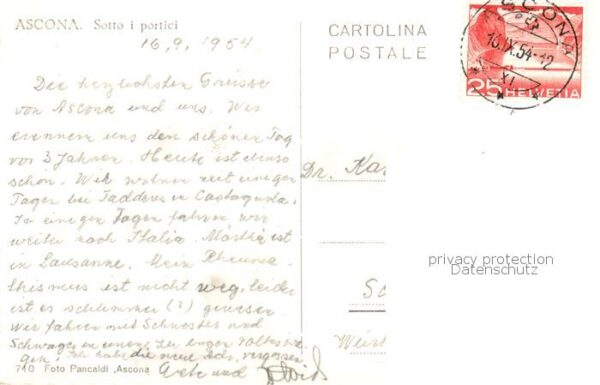 ASCONA. Sotto i portici
16.9.1954
CARTOLINA
POSTALE
ASCONA
16.IX.54-12
XI
25 HELVETIA
Die herzlichsten Grüsse
von Ascona und uns. Wir
erinnern uns den schönen Tag
vor 3 Jahren. Heute ist ebenso
schön. Wir wohnen seit einigen
Tagen bei Taddeus in Castagnola.
In einigen Tagen fahren wir
weiter nach Italia. Märthi ist
in Lausanne. Mein Rheuma-
thismus ist nicht weg, leider
ist es schlimmer (?) gewesen
Wir fahren mit Schwester und
Schwager in
gen. Ich habe die neue Adr. vergessen
und
Dr. Ka
privacy protection
Datenschutz
Sc
Würt
710 Foto Pancaldi, Ascona